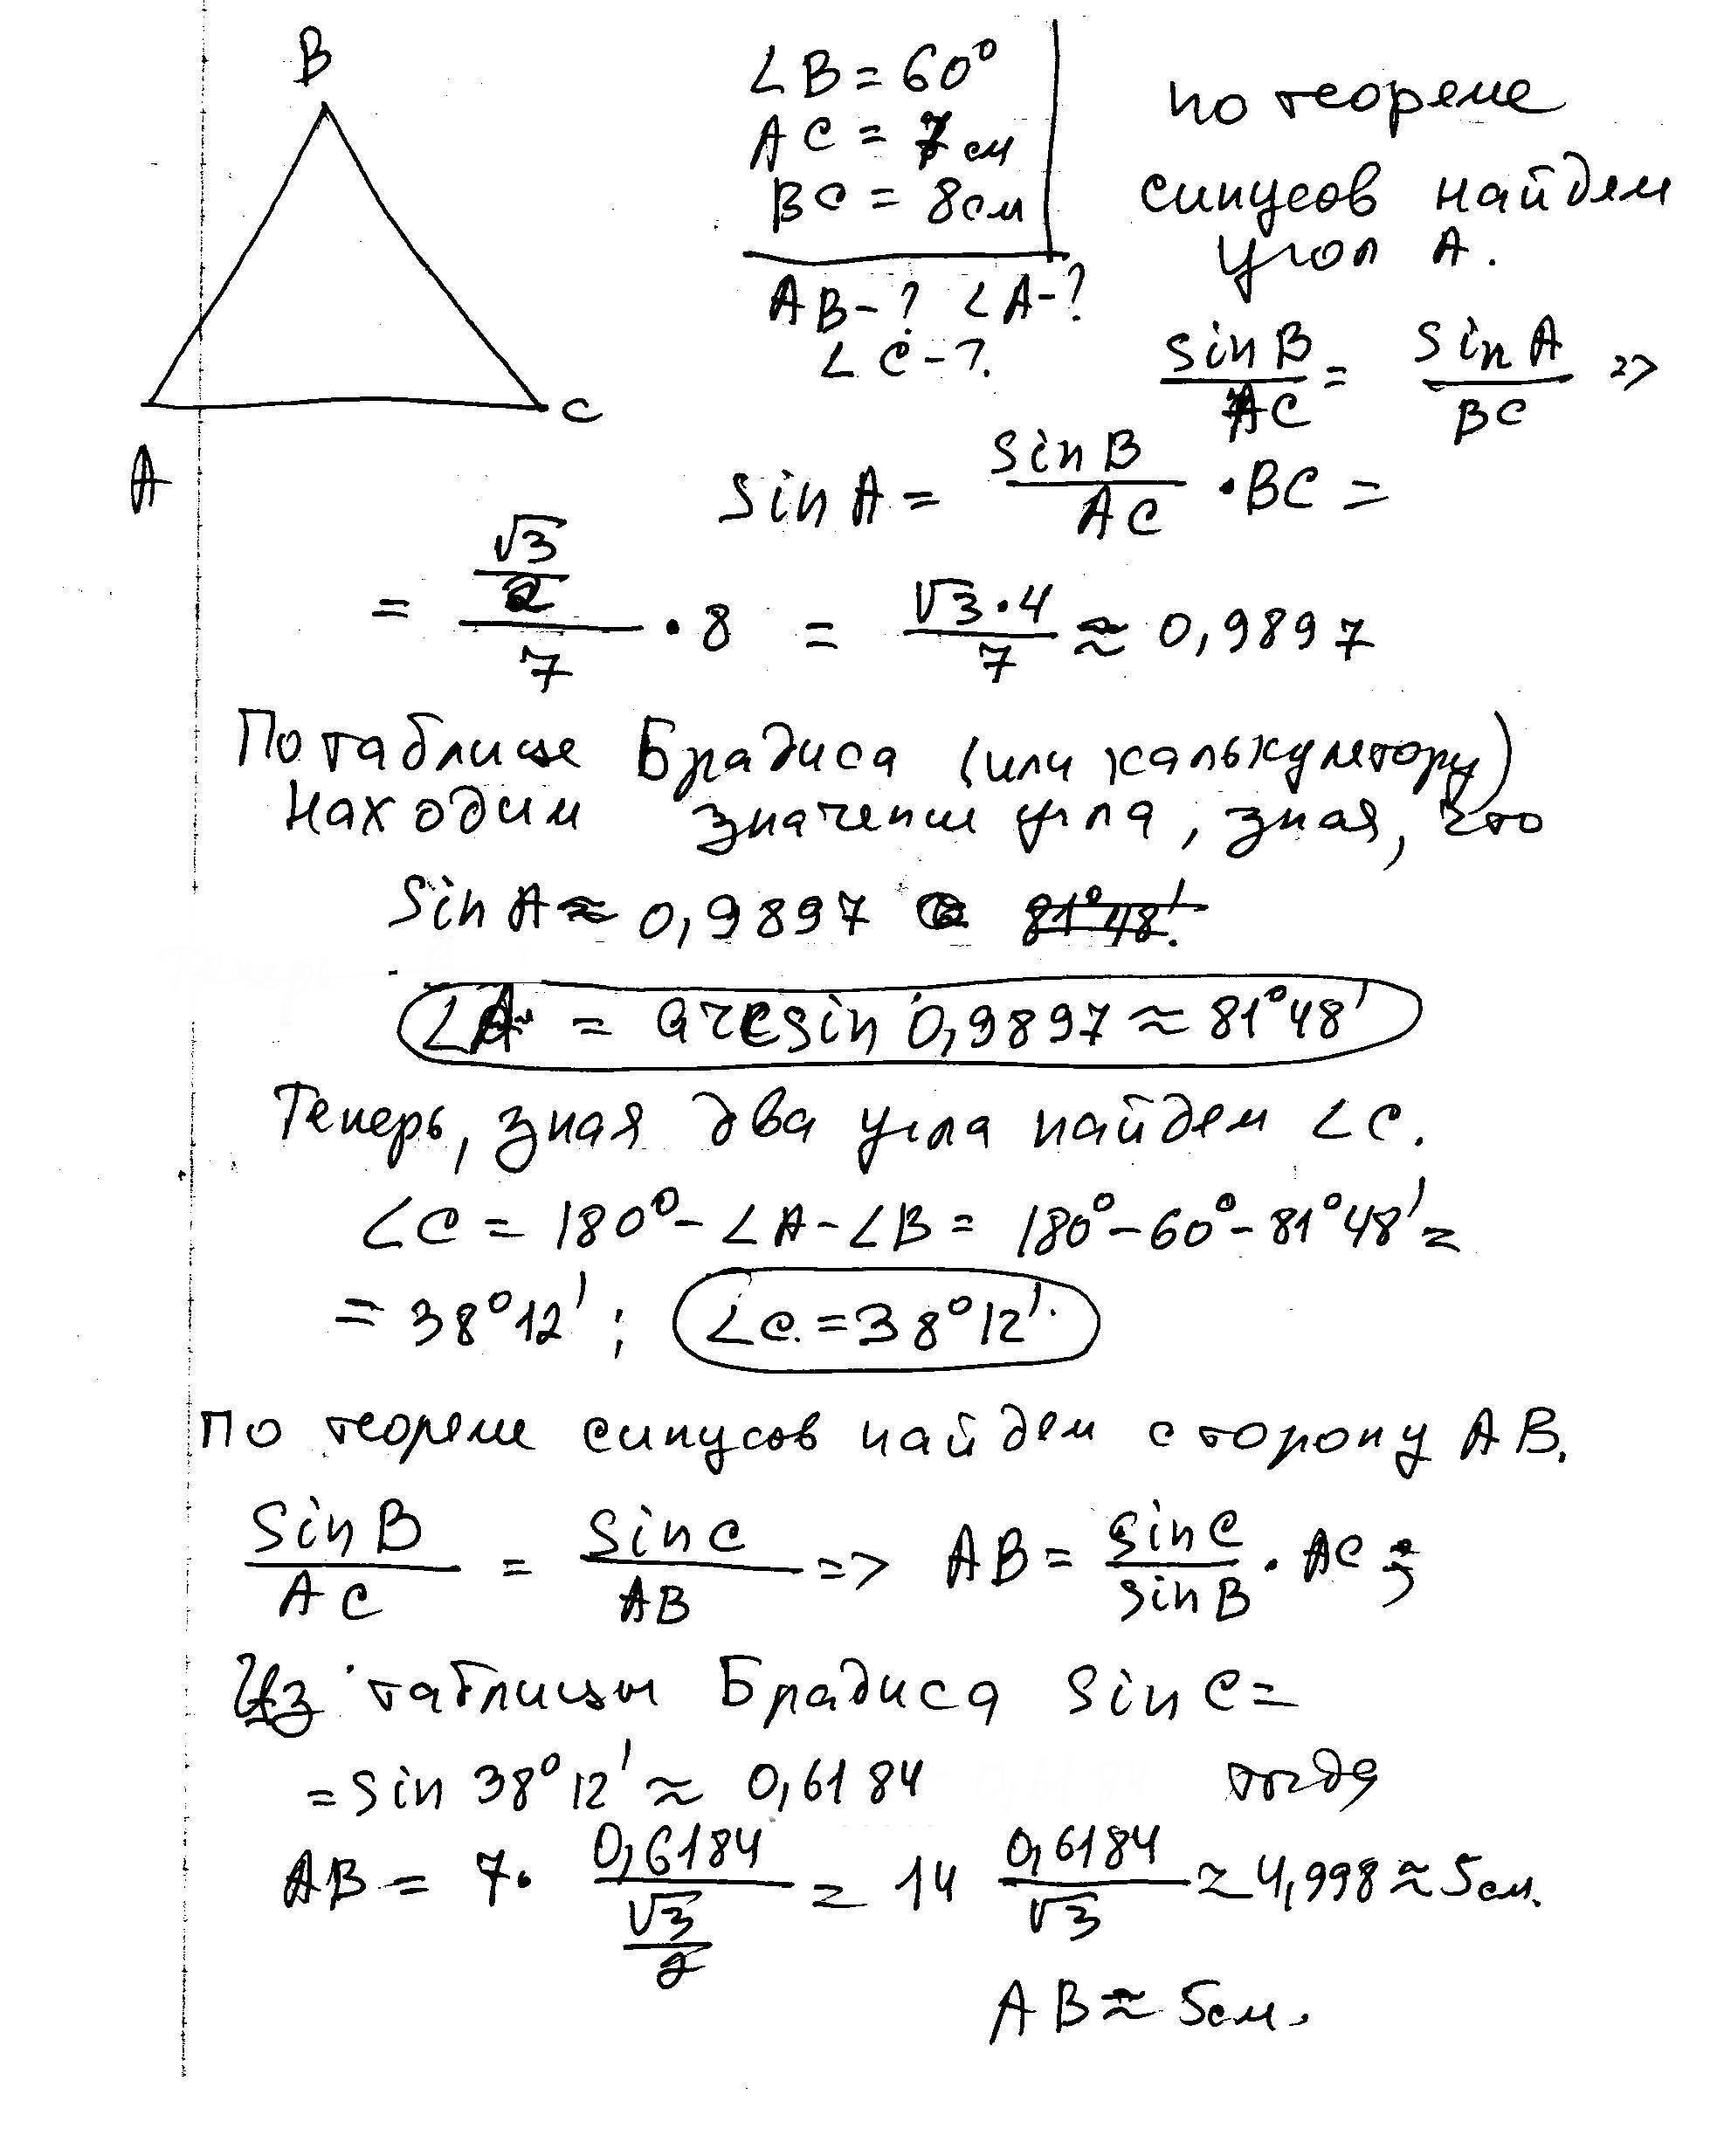 B
A
C
∠B = 60°
AC = 7 см
BC = 8 см
AB - ? ∠A - ?
∠C - ?.
по теореме
синусов найдем
угол A.
sin B / AC = sin A / BC =>
sin A = sin B / AC • BC =
= (√3/2) / 7 • 8 = √3•4 / 7 ≈ 0,9897
По таблице Брадиса (или калькулятору)
находим значение угла, зная, что
sin A ≈ 0,9897 81°48'.
∠A = arcsin 0,9897 ≈ 81°48'
Теперь, зная два угла найдем ∠C.
∠C = 180° - ∠A - ∠B = 180° - 60° - 81°48' =
= 38°12' ; ∠C = 38°12'.
По теореме синусов найдем сторону AB.
Sin B / AC = Sin C / AB => AB = sin C / sin B • AC ;
Из таблицы Брадиса sin C =
= sin 38°12' ≈ 0,6184 тогда
AB = 7 • 0,6184 / (√3/2) = 14 0,6184 / √3 ≈ 4,998 ≈ 5 см.
AB ≈ 5 см.